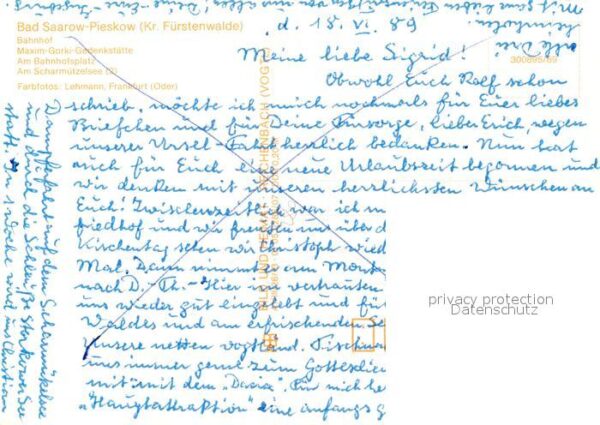 Bad Saarow-Pieskow (Kr. Fürstenwalde)
Bahnhof
Maxim-Gorki-Gedenkstätte
Am Bahnhofsplatz
Am Scharmützelsee (2)
Farbfotos: Lehmann, Frankfurt (Oder)
300895/89
BILD UND HEIMAT REICHENBACH (VOGTL)
d. 18. VI. 89
Meine liebe Sigrid!
Obwohl Euch Rolf schon
schrieb, möchte ich mich nochmals für Euer liebes
Briefchen und für Deine Fürsorge, lieber Erich, wegen
unserer Ursel-Fahrt herzlich bedanken. Nun hat
auch für Euch die neue Urlaubszeit begonnen und
wir denken mit unseren herzlichsten Wünschen an
Euch! Zwischenzeitlich war ich
friedhof und wir freuten uns über d
Kirchentag sehen wir Christoph wied
Mal. Dann am Mont
nach D.-Th.- Hier im vertrauten
uns wieder gut eingelebt und
Waldes und am erfrischenden Se
Unsere netten vogtländ. Tischn
uns immer gerne zum Gottesdie
mit mit dem "Dacia". Für mich
"Hauptattraktion" eine anfangs g
Dampferfahrt auf dem Scharmützelsee
und durch die Schleuße Storkower See
statt. In 1 Woche wird uns Christian
alle Drei
privacy protection
Datenschutz